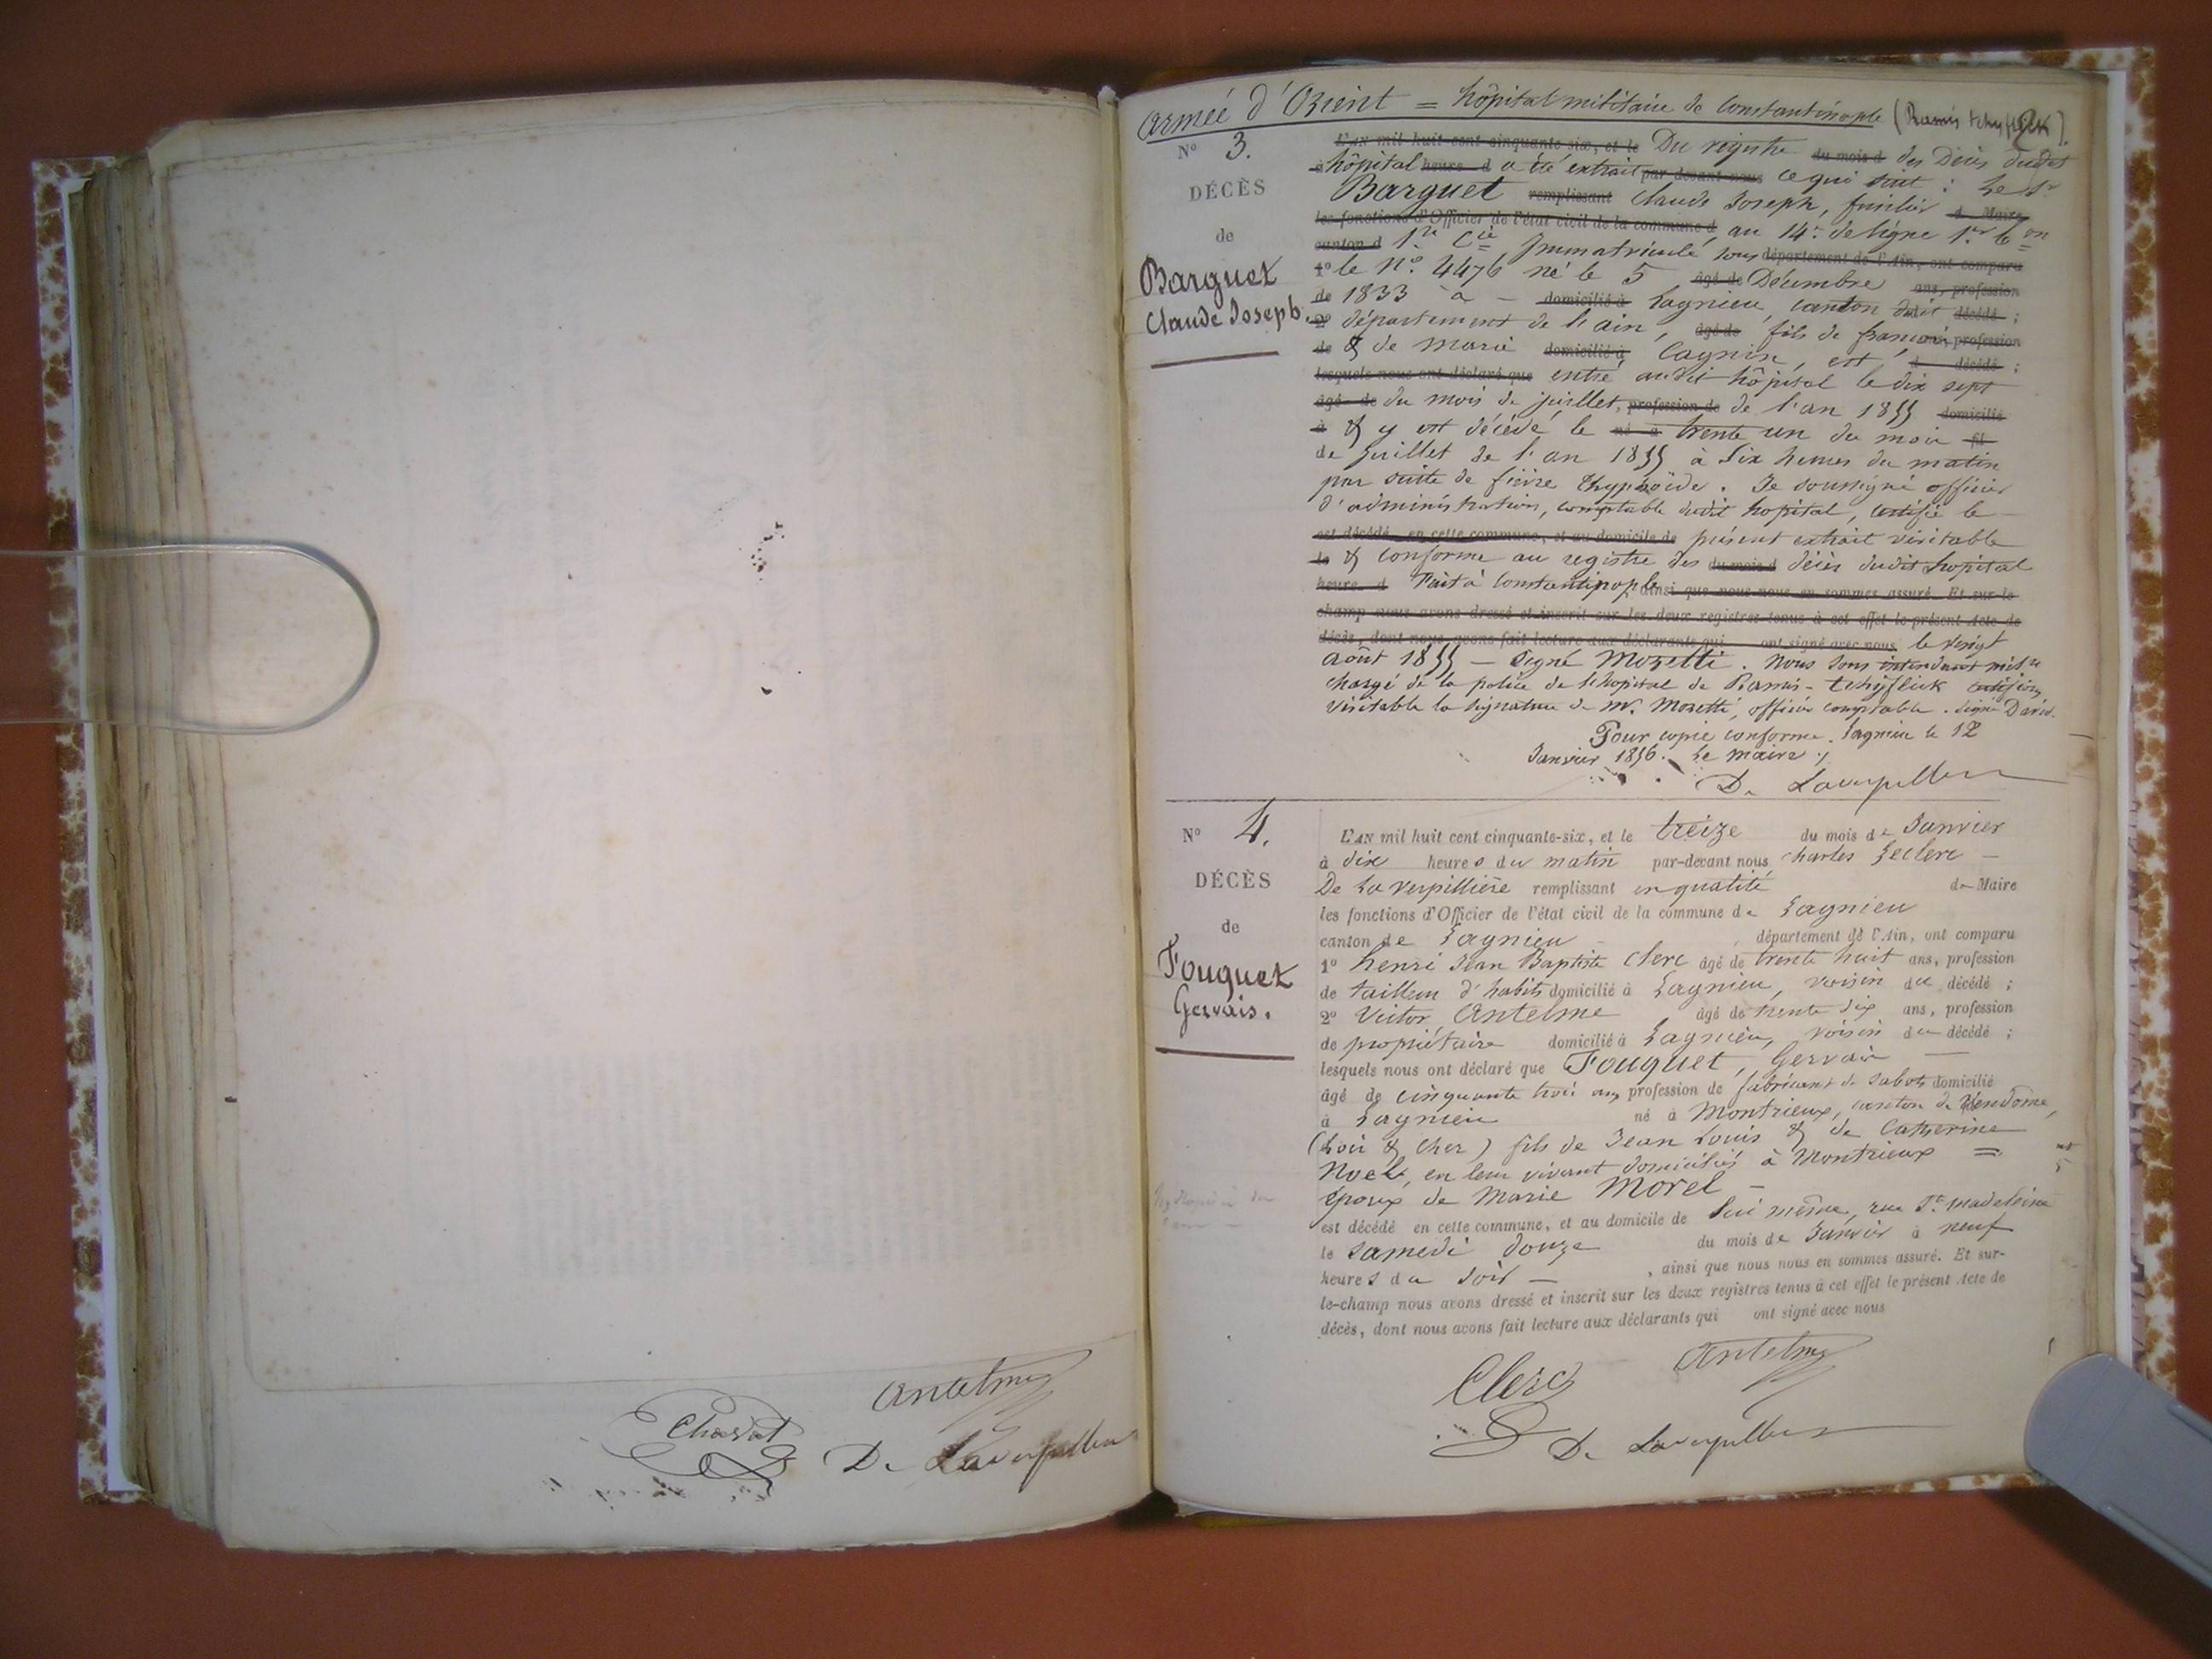 Antelme
Chavat
De Laverpilliere
Armée d'Orient = hôpital militaire de Constantinople (Ramis tchyflick).
N° 3.
DÉCÈS
de
Barguet
Claude Joseph.
L'AN mil huit cent cinquante-six, et le Du registre du mois d des Décès dudit
à hôpital heure d a été extrait par-devant nous ce qui suit : Le Sr
Barguet remplissant Claude Joseph, fusilier d Maire
les fonctions d'Officier de l'état civil de la commune d au 14e de ligne 1er bon
canton d 1re Cie Immatriculé sous département de l'Ain, ont comparu
1° le N° 4476 né le 5 âgé de Décembre ans, profession
de 1833 à - domicilié à Lagnieu, canton dudit décédé ;
2° département de l'ain, âgé de fils de françois profession
de & de marie domicilié à Cagnin, est d décédé ;
lesquels nous ont déclaré que entré audit hôpital le dix sept
âgé de du mois de juillet, profession de de l'an 1855 domicilié
à & y est décédé le né à trente un du mois fil
de juillet de l'an 1855 à six heures du matin
par suite de fièvre thyphoïde. Je soussigné officier
d'administration, comptable dudit hopital, certifie le
est décédé en cette commune, et au domicile de présent extrait véritable
le & conforme au registre des du mois d décès dudit hopital
heure d Fait à Constantinople ainsi que nous nous en sommes assuré. Et sur-le
champ nous avons dressé et inscrit sur les deux registres tenus à cet effet le présent Acte de
décès, dont nous avons fait lecture aux déclarants qui ont signé avec nous le vingt
août 1855 - signé Moretti. Nous sous intendant milre
chargé de la police de l'hopital de Ramis-tchyflick certifions
véritable la signature de Mr. Moretti, officier comptable. signé David.
Pour copie conforme. Lagnieu le 12
Janvier 1856. Le maire :/
De Laverpilliere
N° 4.
DÉCÈS
de
Fouquet
Gervais.
L'AN mil huit cent cinquante-six, et le treize du mois de Janvier
à dix heures du matin par-devant nous charles Leclerc -
De La Verpillière remplissant en qualité de Maire
les fonctions d'Officier de l'état civil de la commune de Lagnieu
canton de Lagnieu , département de l'Ain, ont comparu
1° henri Jean Baptiste Clerc âgé de trente huit ans, profession
de tailleur d'habits domicilié à Lagnieu, voisin du décédé ;
2° Victor Antelme âgé de trente six ans, profession
de propriétaire domicilié à Lagnieu, voisin du décédé ;
lesquels nous ont déclaré que Fouquet, Gervais -
âgé de cinquante trois ans, profession de fabricant de sabots domicilié
à Lagnieu né à Montrieux, canton de Vendôme,
(Loir & Cher) fils de Jean Louis & de Catherine
Noel, en leur vivant domiciliés à Montrieux =
époux de Marie Morel -
est décédé en cette commune, et au domicile de lui même, rue Ste madeleine
le samedi douze du mois de Janvier à neuf
heures du soir - , ainsi que nous nous en sommes assuré. Et sur-
le-champ nous avons dressé et inscrit sur les deux registres tenus à cet effet le présent Acte de
décès, dont nous avons fait lecture aux déclarants qui ont signé avec nous
Clerc
Antelme
De Laverpilliere